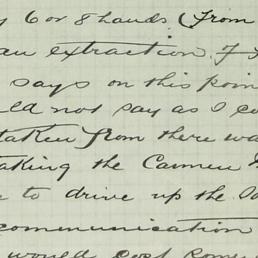 6 or 8 hands (From
an extraction. of
says on this poin
ld not say as I co
taken from there wa
taking the Carmen
to drive up the
communication
would cost some